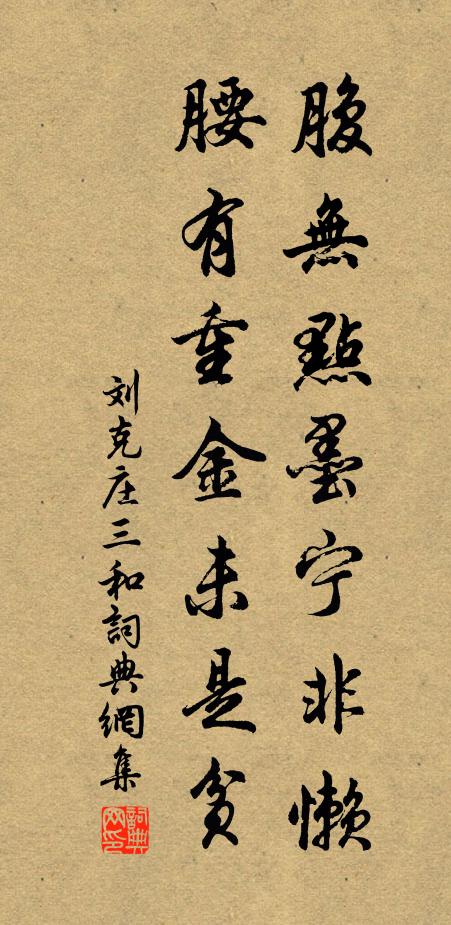 腹無點墨宁非懒
腰有重金未是貧
刘克庄三和詞典網集
詞典网印